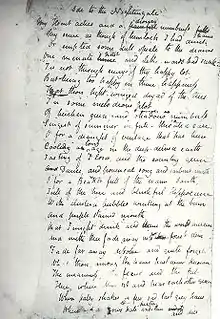 Ode to the Nightingale
My Heart aches and a numbness falls
My sense as though of hemlock I had drunk
Or emptied some dull opiate to the drains
One minute and Lethe wards had sunk
'Tis not through envy of thy happy lot
But being too happy in thine happiness
That thou light dryad of the trees
In some melodious plot
Of beechen green and shadows numberless
Singest of summer in full ease
a draught of vintage that has been
Cooling age in the deep-delved earth
Tasting of Flora and the country green
And Dance, and song and sunburnt mirth
for a Beaker full of the warm South
Full of the true and blushful Hippocrene
With bubbles winking at the brim
And purple stained mouth
That I might drink and leave the world unseen
And with thee fade away
Fade far away and quite forget
What thou among the leaves hast never known
The weariness the fever and the fret
Here, where men sit and hear each other groan
Where palsy shakes a few sad last grey hairs
Where pale and thin and